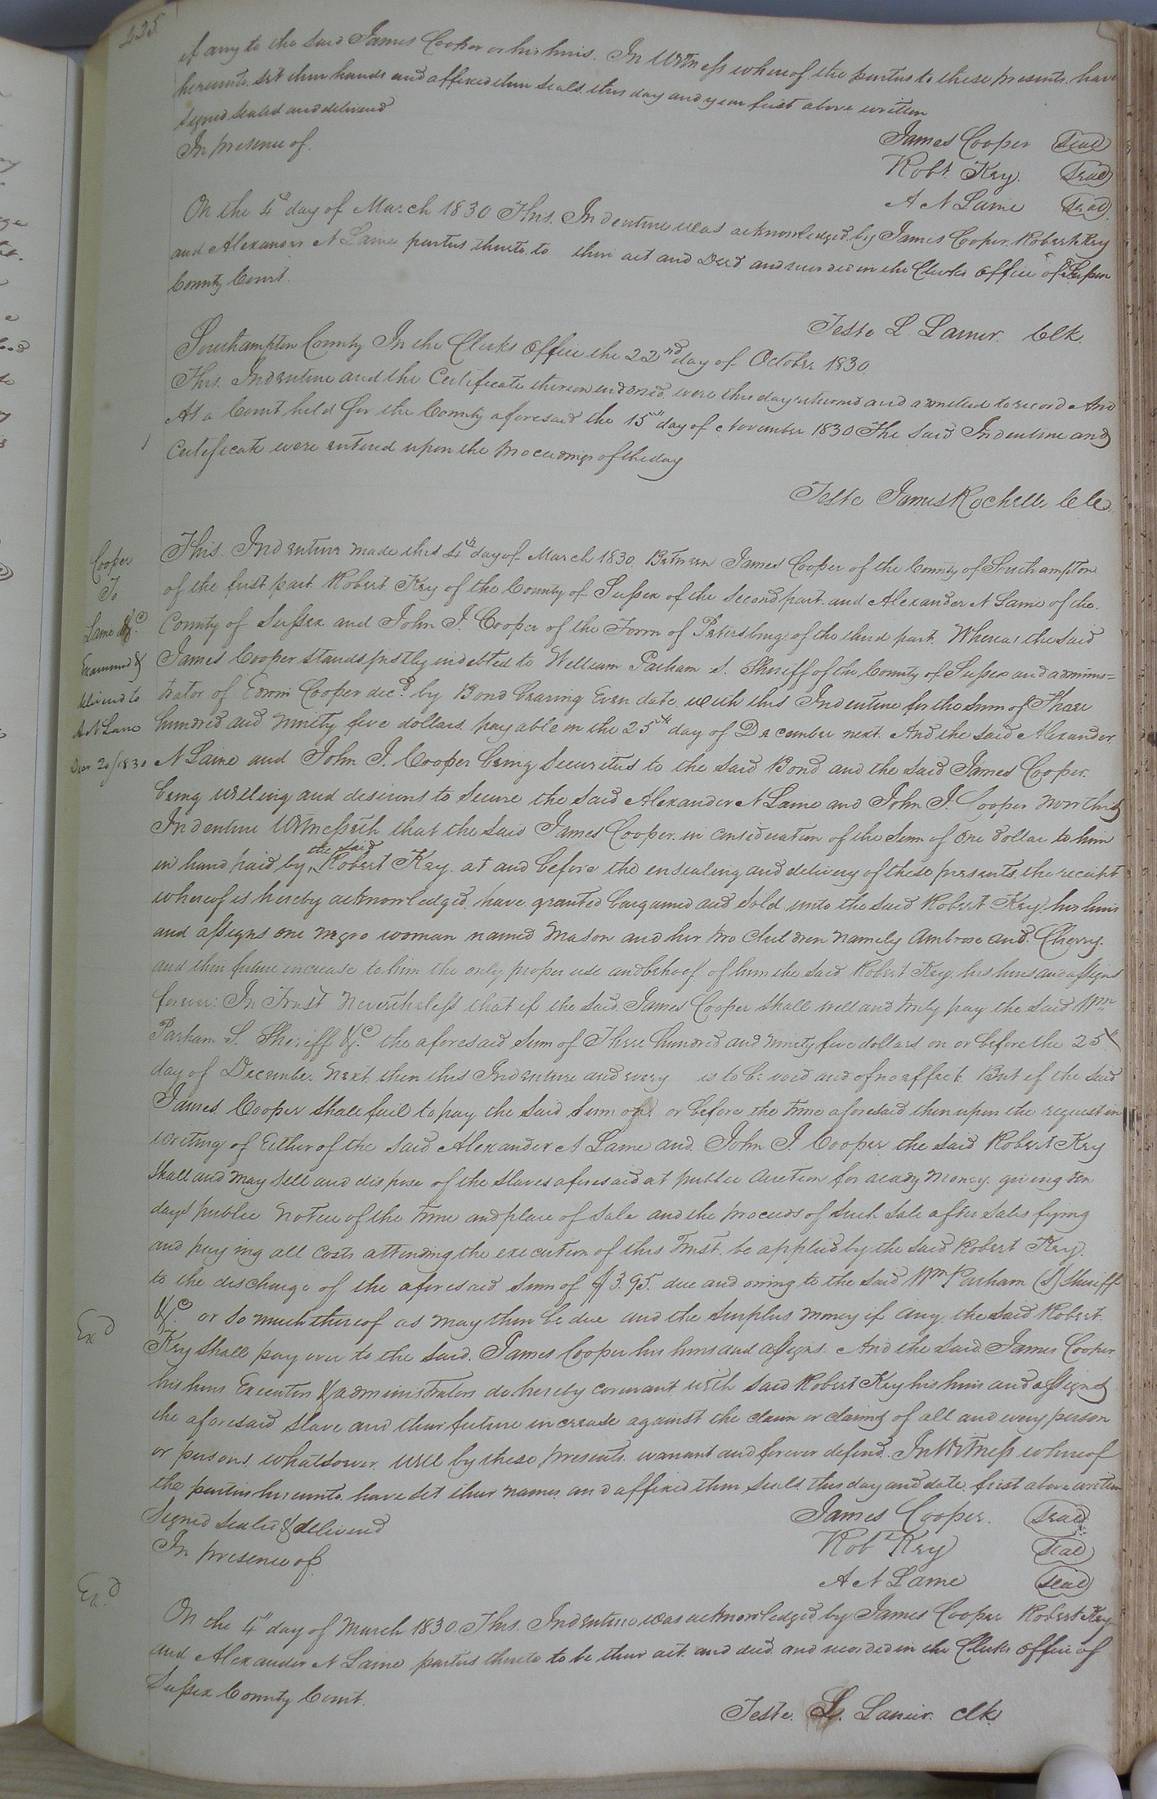 225
if any to the said James Cooper or his heirs. In Witness whereof the parties to these presents have
hereunto set their hands and affixed their seals this day and year first above written
Signed sealed and delivered
In presence of.
James Cooper Seal
Robt Key. Seal
A N Laine Seal
On the 4th day of March 1830 This Indenture was acknowledged by James Cooper Robert Key
and Alexander N Laine parties thereto to their act and Deed and recorded in the Clerks Office of Sussex
County Court.
Teste L Lanier. Clk.
Southampton County In the Clerks Office the 22nd day of October 1830
This Indenture and the Certificate thereon endorsed were this day returned and admitted to record And
At a Court held for the County aforesaid the 15th day of November 1830 The said Indenture and
Certificate were entered upon the proceedings of the day
Teste James Rochelle Clk.
Cooper
To
Laine &c
Examined &
delivered to
A N Laine
Decr 20/1830
This Indenture made this 4th day of March 1830 Between James Cooper of the County of Southampton
of the first part Robert Key of the County of Sussex of the second part and Alexander N Laine of the
County of Sussex and John J. Cooper of the Town of Petersburg of the third part. Whereas the said
James Cooper stands justly indebted to William Parham S. Sheriff of the County of Sussex and adminis=
trator of Edwin Cooper decd by Bond bearing Even date with this Indenture for the sum of Three
hundred and ninety five dollars payable on the 25th day of December next. And the said Alexander
N Laine and John J. Cooper being Securities to the said Bond and the said James Cooper.
being willing and desirous to secure the said Alexander N Laine and John J. Cooper Now this
Indenture Witnesseth that the said James Cooper in consideration of the sum of one dollar to him
in hand paid by the said Robert Key at and before the ensealing and delivery of these presents the receipt
whereof is hereby acknowledged, have granted bargained and sold unto the said Robert Key his heirs
and assigns one negro woman named Mason and her two children namely Ambrose and Cherry.
and their future increase to him the only proper use and behoof of him the said Robert Key his heirs and assigns
forever: In Trust Nevertheless that if the said James Cooper shall well and truly pay the said Wm
Parham S. Sheriff &c the aforesaid sum of Three hundred and ninety five dollars on or before the 25th
day of December. next then this Indenture and every is to be void and of no effect. But if the said
James Cooper shall fail to pay the said sum on or before the time aforesaid then upon the request in
writing of Either of the said Alexander N Laine and John J. Cooper the said Robert Key
shall and may sell and dispose of the slaves aforesaid at public Auction for ready money. giving ten
days public notice of the time and place of sale and the proceeds of such sale after satisfying
and paying all costs attending the execution of this Trust. be applied by the said Robert Key.
to the discharge of the aforesaid sum of $395. due and owing to the said Wm Parham (S) Sheriff
&c. or so much thereof as may then be due and the surplus money if any the said Robert
Exd
Key shall pay over to the said. James Cooper his heirs and assigns. And the said James Cooper
his heirs Executors & administrators do hereby covenant with said Robert Key his heirs and assigns
the aforesaid slave and their future increase against the claim or claims of all and every person
or persons whatsoever will by these presents. warrant and forever defend. In Witness whereof
the parties hereunto have set their names and affixed their seals this day and date first above written
Signed sealed & delivered
In presence of.
James Cooper. Seal
Robt Key Seal
A N Laine Seal
Exd
On the 4th day of March 1830 This Indenture was acknowledged by James Cooper Robert Key
and Alexander N Laine parties thereto to be their act and deed and recorded in the Clerks Office of
Sussex County Court.
Teste. L. Lanier. Clk